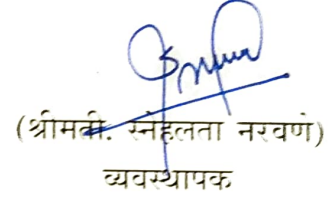 (श्रीमती. स्नेहलता नरवणे)
व्यवस्थापक